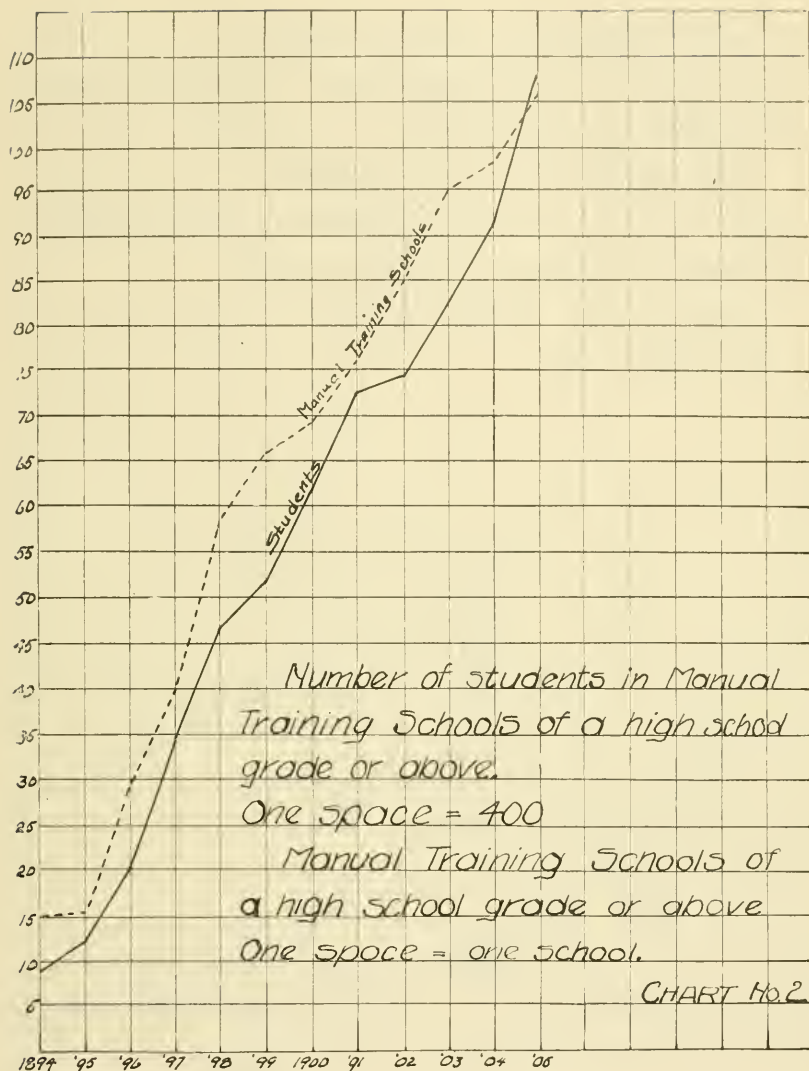 110
105
100
96
90
85
80
75
70
65
60
55
50
45
40
35
30
25
20
15
10
6
Manual Training Schools
Students
Number of students in Manual
Training Schools of a high school
grade or above.
One space = 400
Manual Training Schools of
a high school grade or above
One space = one school.
CHART No. 2
1894 '95 '96 '97 '98 '99 1900 '91 '02 '03 '04 '05